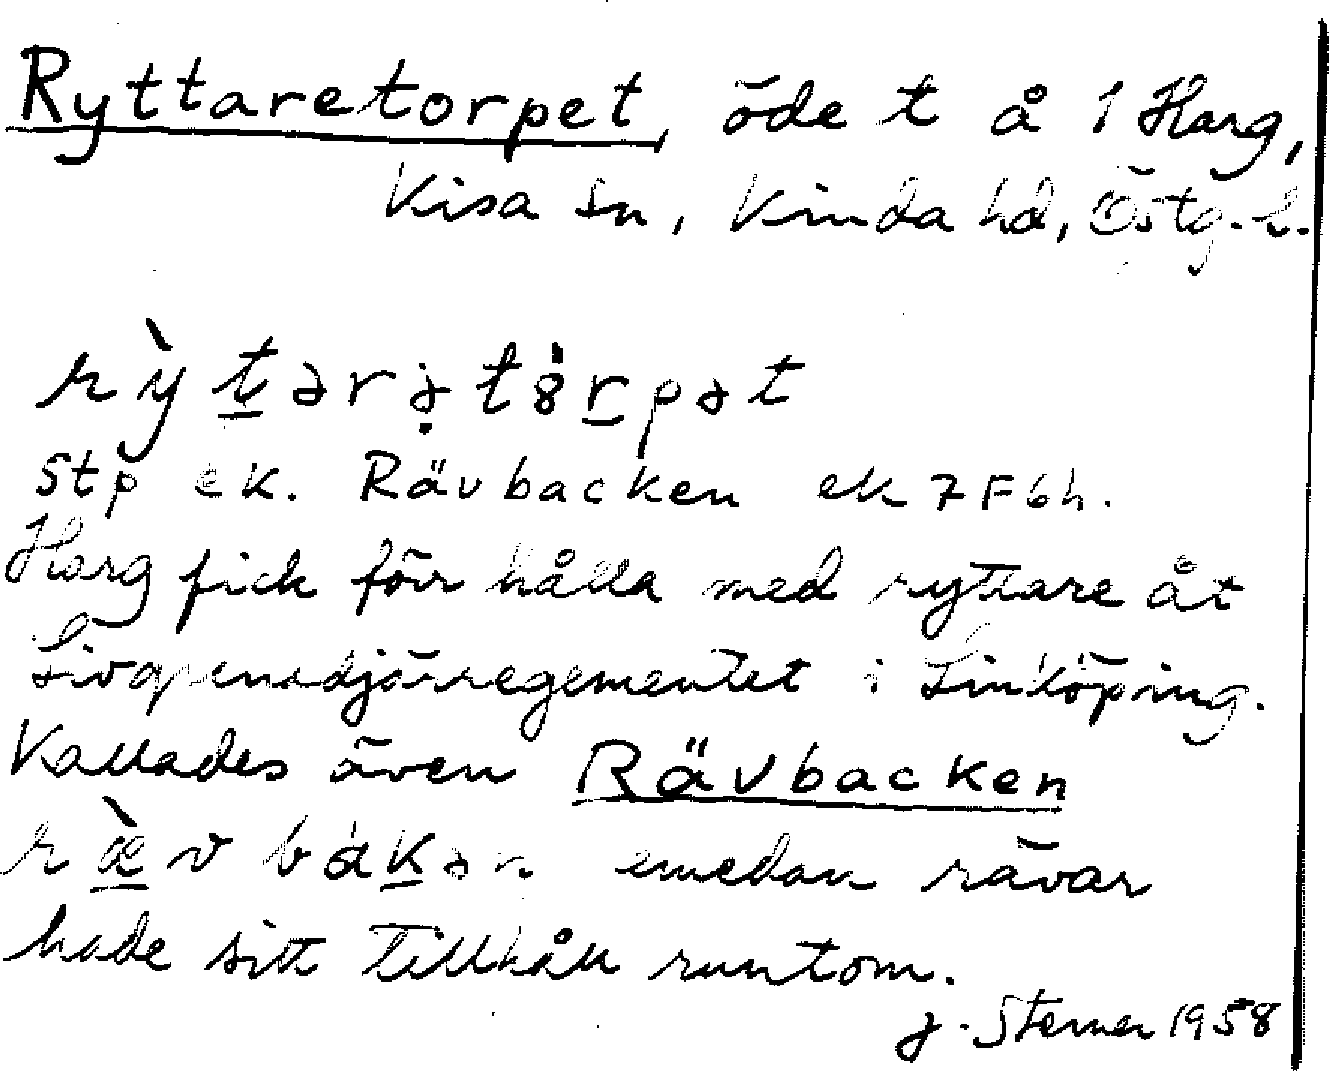 Ryttaretorpet, öde t å 1 Harg,
Kisa sn, Kinda hd, Östg. l.
rỳtərə̣tȯ́rpət
stp ek. Rävbacken ek 7F6h.
Harg fick förr hålla med ryttare åt
Livgrenadjärregementet i Linköping.
Kallades även Rävbacken
ræ̀v bákən emedan rävar
hade sitt tillhåll runtom.
J. Sterner 1958